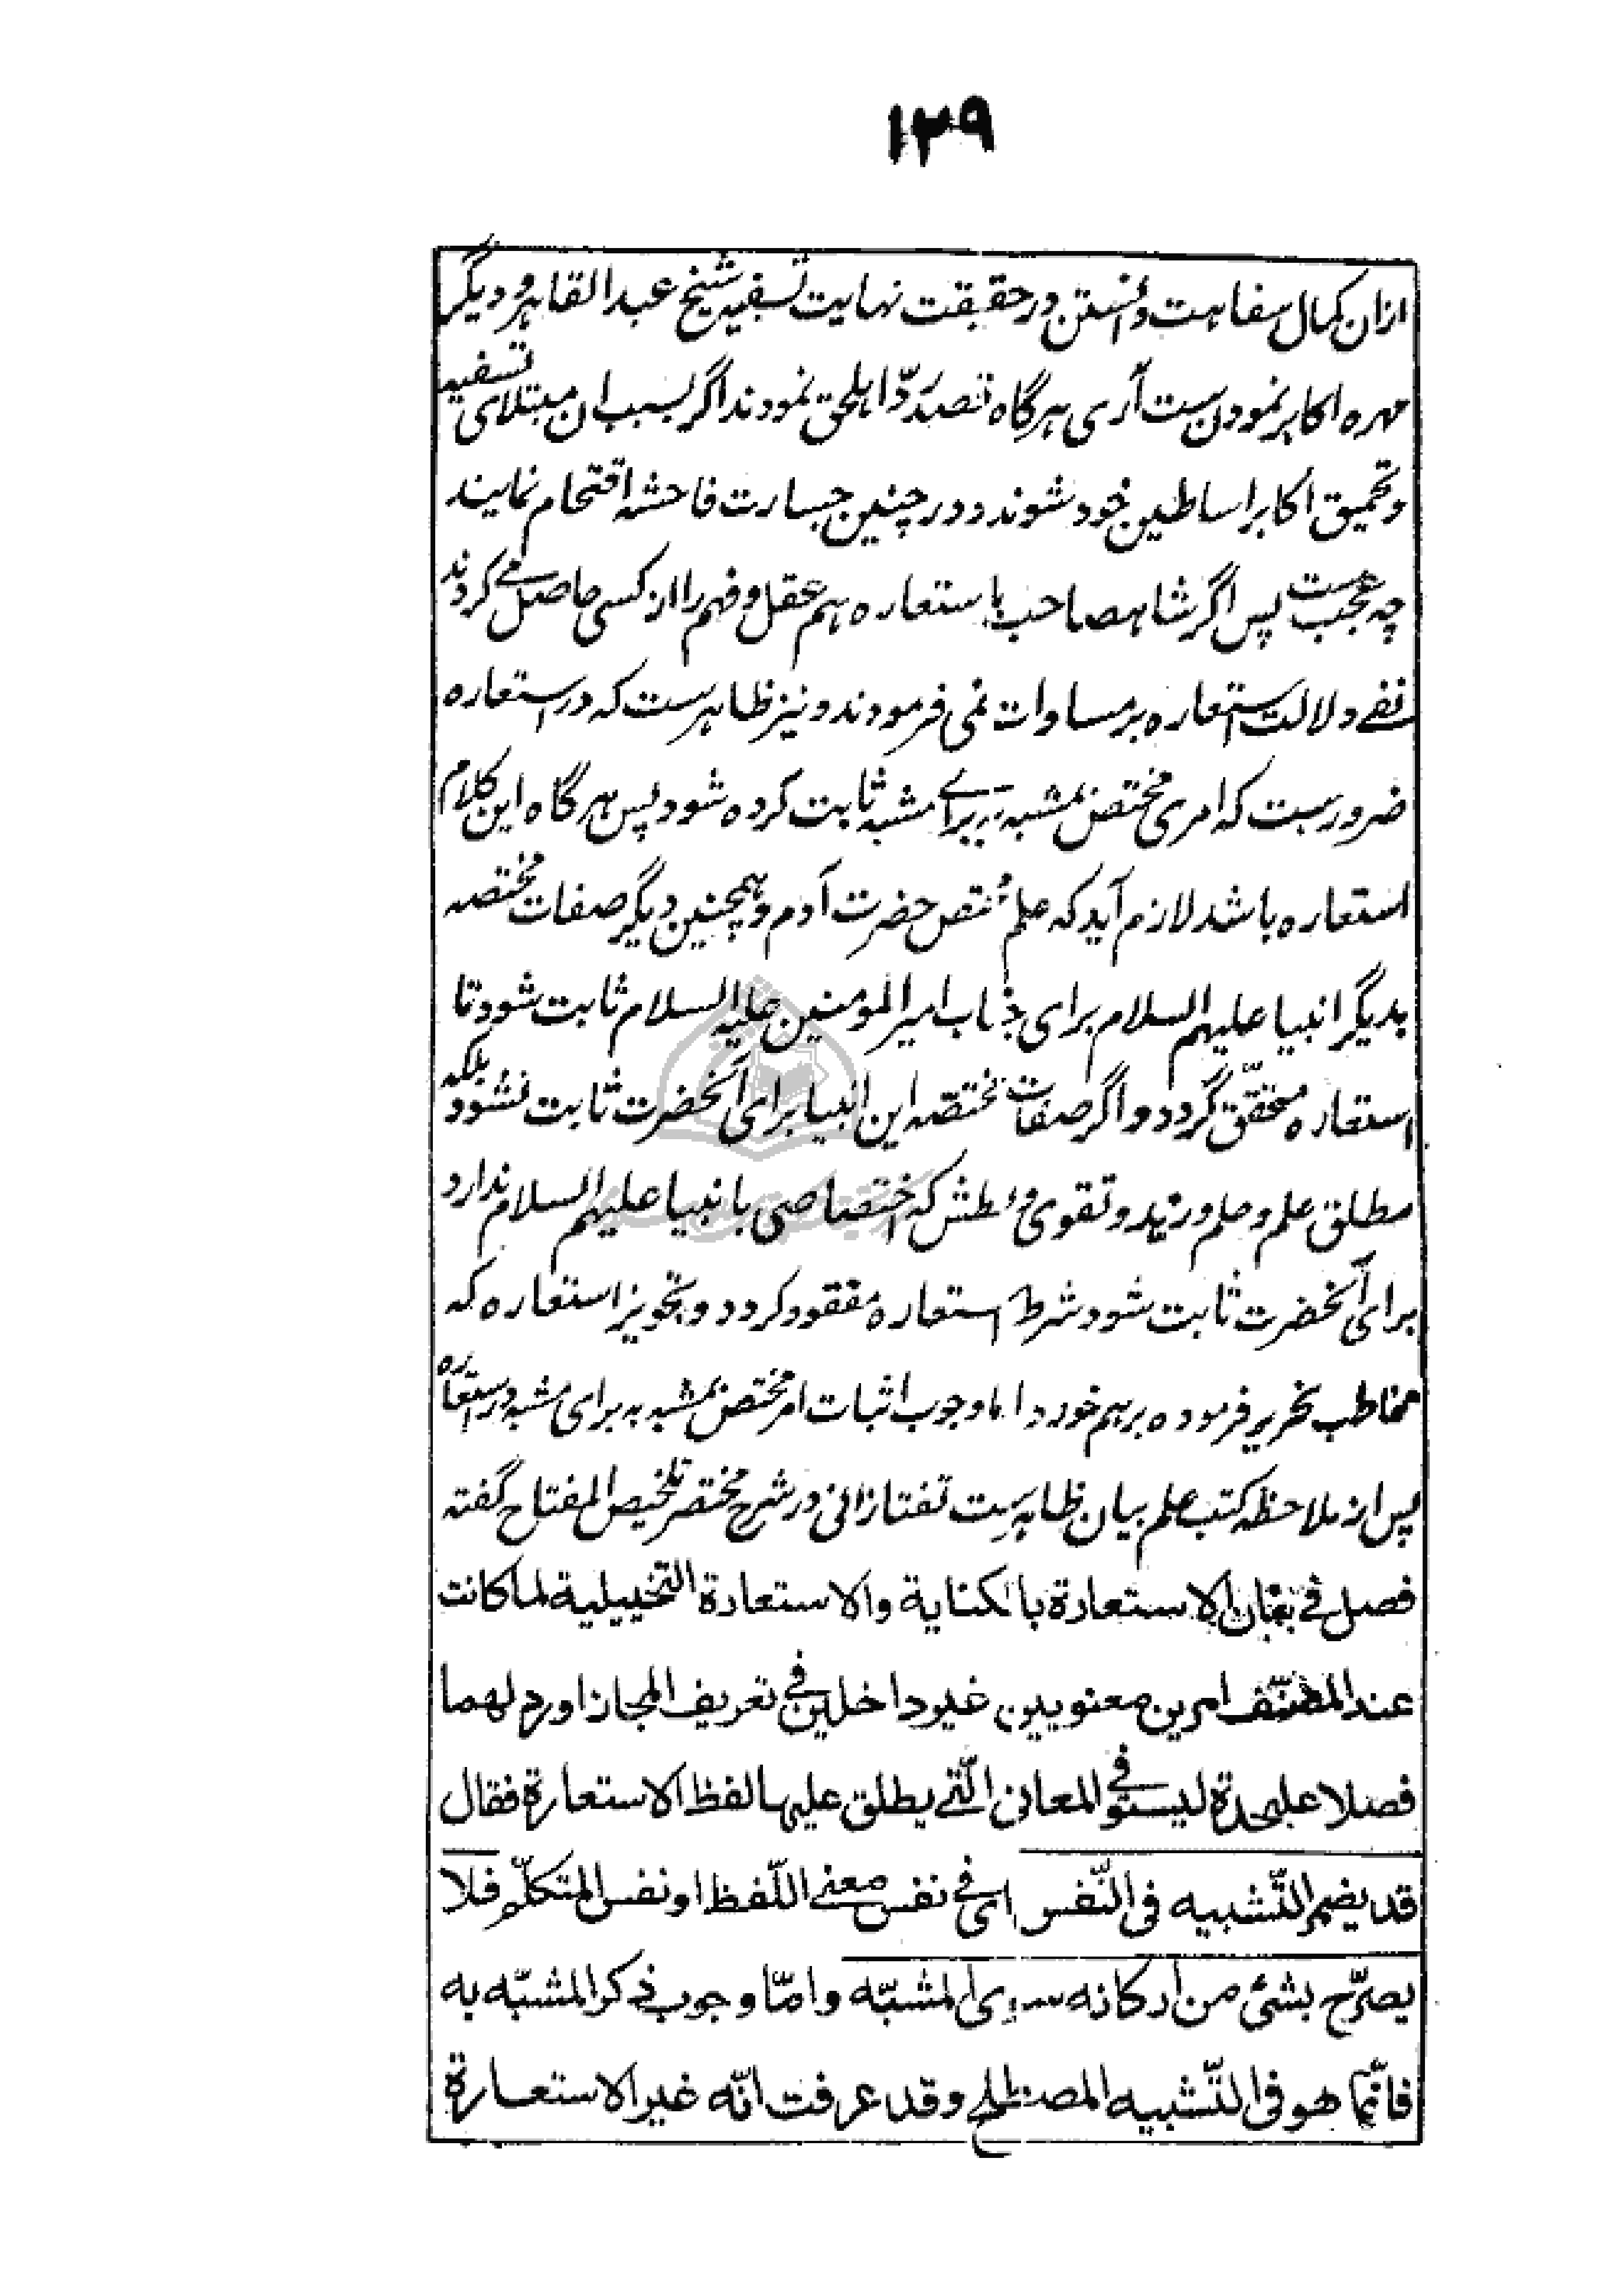 ١٢٩
ازان کمال سفاهت دانستن در حقیقت نهایت تسفیه شیخ عبد القاهر و دیگر
مهره اکابر نمودن ست آری هرگاه تصدی ردّ اهلحق نمودند اگر بسبب ان مبتلای تسفیه
و تحمیق اکابر اساطین خود شوند و در چنین جسارت فاحشه اقتحام نمایند
چه عجبست پس اگر شاهصاحب با ستعاره هم عقل و فهم را از کسی حاصل می کردند
نفے دلالت استعاره بر مساوات نمی فرمودند و نیز ظاهرست که در استعاره
ضرورست که امری مختص بمشبه به برای مشبه ثابت کرده شود پس هرگاه این کلام
استعاره باشد لازم آید که علم مختص حضرت آدم و همچنین دیگر صفات مختصه
بدیگر انبیا علیهم السلام برای جناب امیر المومنین علیه السلام ثابت شود تا
استعاره متحقّق گردد و اگر صفات مختصّه این انبیا برای آنحضرت ثابت نشود بلکه
مطلق علم و حلم و زهد و تقوی و بطش که اختصاصی با نبیا علیهم السلام ندارد
برای آنحضرت ثابت شود شرط استعاره مفقود کردد و تجویز استعاره که
مخاطب نحریر فرموده برهم خورد اما وجوب اثبات امر مختص بمشبه به برای مشبه در استعاره
پس از ملاحظه کتب علم بیان ظاهرست تفتازانی در شرح مختصر تلخیص المفتاح گفته
فصل فی بیان الاستعارة بالکنایة والاستعارة التخییلیة لما کانت
عند المصنّف امرین معنویین غیر داخلین فی تعریف المجاز اورد لهما
فصلا علیحدة لیستوفی المعانی الّتی یطلق علیها لفظ الاستعارة فقال
قد یضمر التّشبیه فی النّفس ای فی نفس معنی اللّفظ او نفس المتکلّم فلا
یصرّح بشئ من ارکانه سوی المشبّه وامّا وجوب ذکر المشبّه به
فانّما هو فی التّشبیه المصطلح وقد عرفت انّه غیر الاستعارة